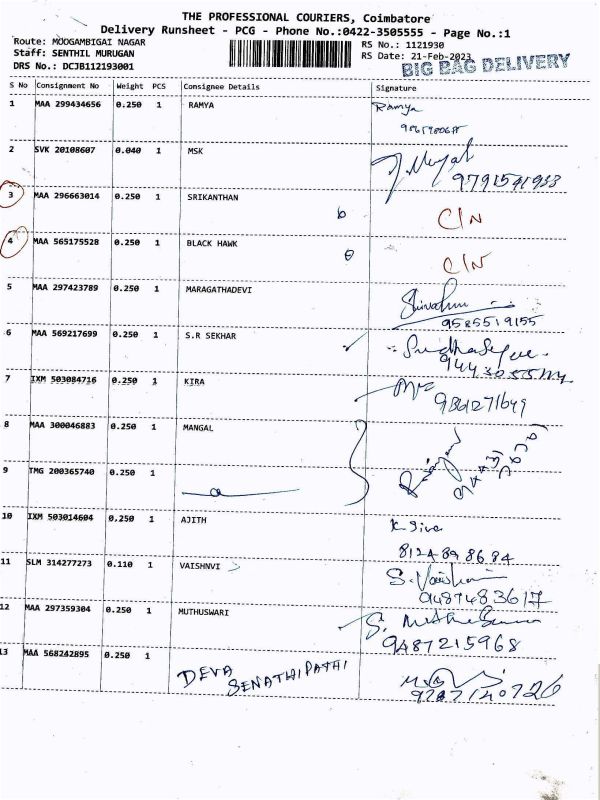 THE PROFESSIONAL COURIERS, Coimbatore
Delivery Runsheet - PCG - Phone No.:0422-3505555 - Page No.:1
Route: MOOGAMBIGAI NAGAR RS No.: 1121930
Staff: SENTHIL MURUGAN RS Date: 21-Feb-2023
DRS No.: DCJB112193001 BIG BAG DELIVERY
S No Consignment No Weight PCS Consignee Details Signature
1 MAA 299434656 0.250 1 RAMYA Ramya
2 SVK 20108607 0.040 1 MSK
9791591933
3 MAA 296663014 0.250 1 SRIKANTHAN C/N
4 MAA 565175528 0.250 1 BLACK HAWK C/N
5 MAA 297423789 0.250 1 MARAGATHADEVI
9585519155
6 MAA 569217699 0.250 1 S.R SEKHAR
7 IXM 503084716 0.250 1 KIRA
9861271649
8 MAA 300046883 0.250 1 MANGAL
9 TMG 200365740 0.250 1
10 IXM 503014604 0.250 1 AJITH K Siva
8124898684
11 SLM 314277273 0.110 1 VAISHNVI S. Vaishnavi
9487483617
12 MAA 297359304 0.250 1 MUTHUSWARI
9487215968
13 MAA 568242895 0.250 1 DEVA
SENATHIPATHI
9787140726